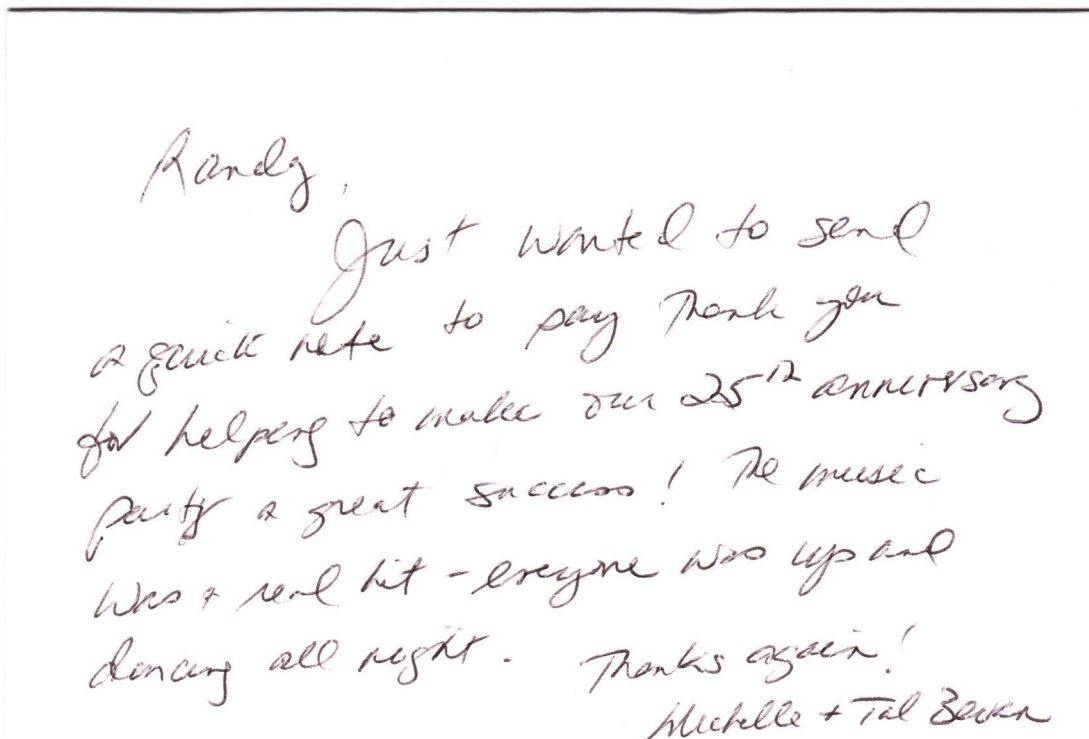 Randy,
Just wanted to send
a quick note to say Thank you
for helping to make our 25th anniversary
party a great success! The music
was a real hit - everyone was up and
dancing all night. Thanks again!
Michelle + Tal